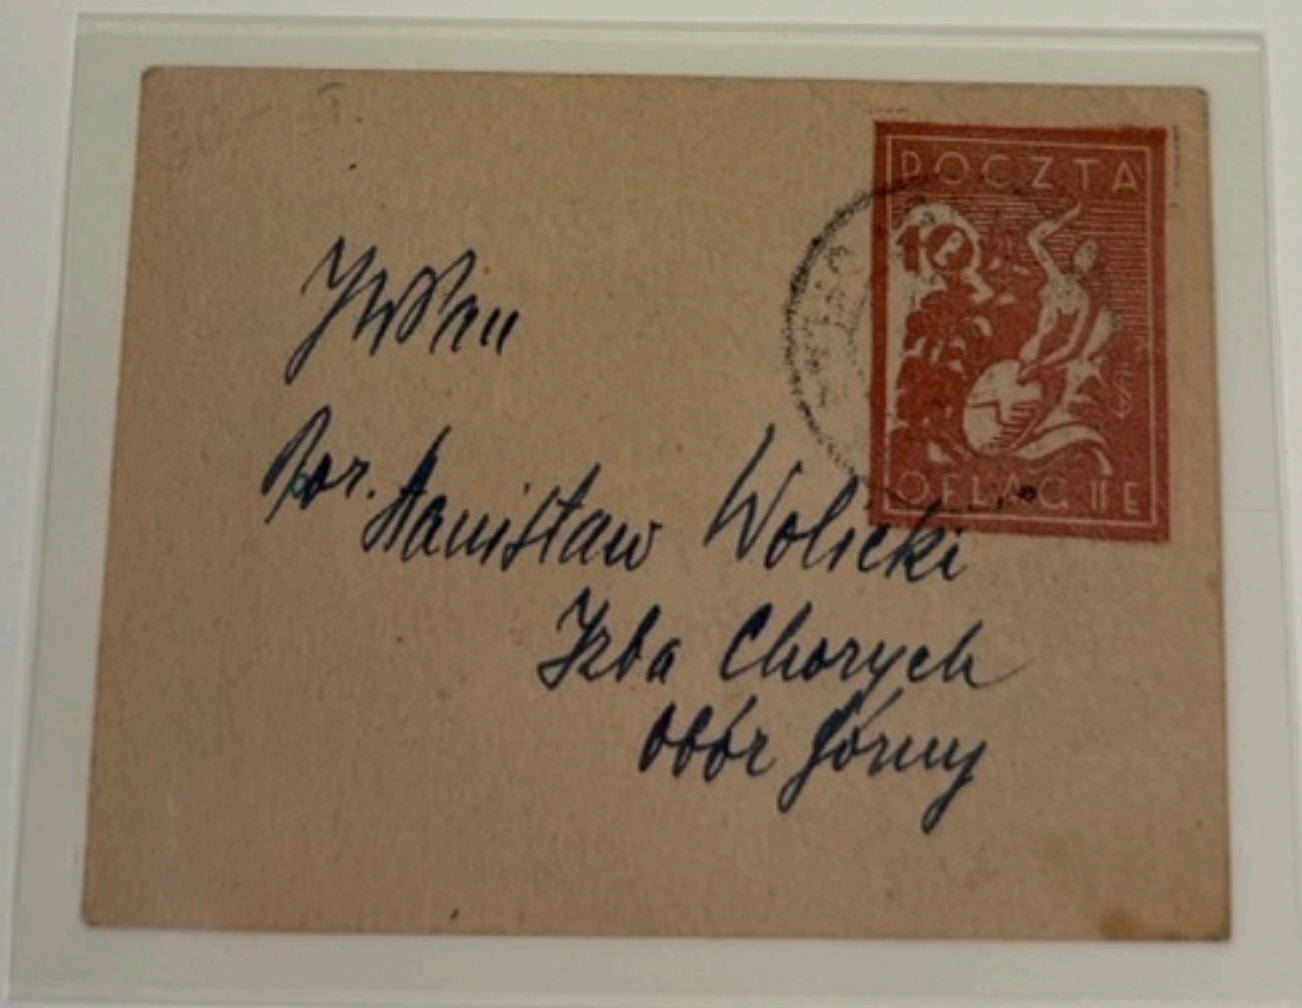 POCZTA
10
OFLAG II E
JWPan
por. Stanisław Wolicki
Izba Chorych
Obóz Górny